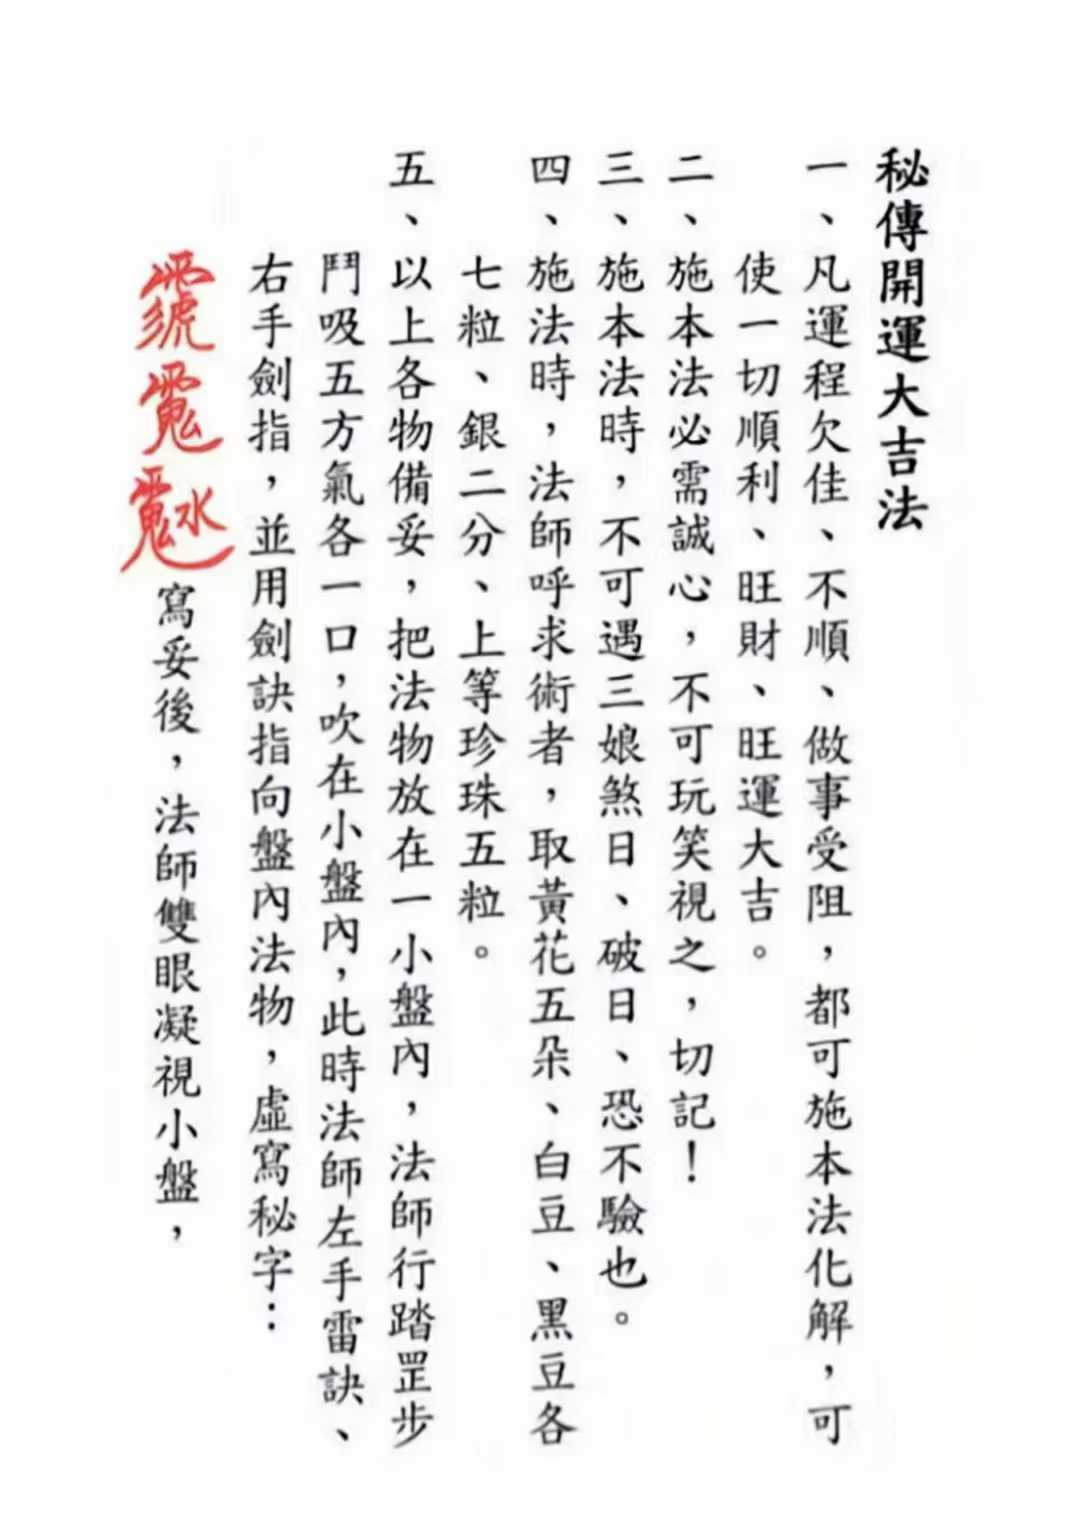 秘傳開運大吉法
一、凡運程欠佳、不順、做事受阻，都可施本法化解，可
使一切順利、旺財、旺運大吉。
二、施本法必需誠心，不可玩笑視之，切記！
三、施本法時，不可遇三娘煞日、破日、恐不驗也。
四、施法時，法師呼求術者，取黃花五朵、白豆、黑豆各
七粒、銀二分、上等珍珠五粒。
五、以上各物備妥，把法物放在一小盤內，法師行踏罡步
鬥吸五方氣各一口，吹在小盤內，此時法師左手雷訣、
右手劍指，並用劍訣指向盤內法物，虛寫秘字：
寫妥後，法師雙眼凝視小盤，